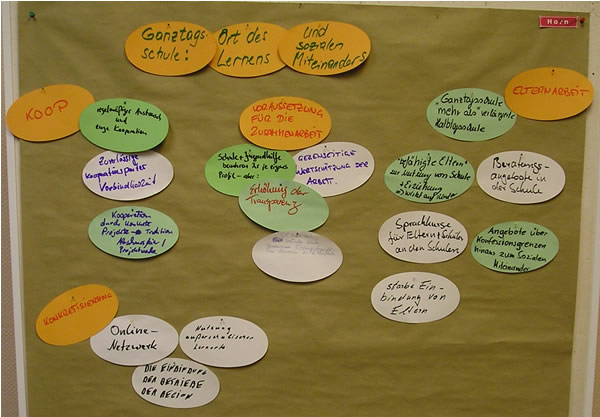 Ganztags-
schule:
Ort des
Lernens
Und
sozialen
Miteinanders
Horn
KOOP
regelmäßiger Austausch
und
enge Kooperation
Zuverlässige
Kooperationspartner
Verbindlichkeit
Kooperation
durch konkrete
Projekte → Tradition
Projektwoche
VORAUSSETZUNG
FÜR DIE
ZUSAMMENARBEIT
Schule + Jugendhilfe
bewahren ihr je eigenes
Profil - aber:
GEGENSEITIGE
WERTSCHÄTZUNG DER
ARBEIT.
Erhöhung der
Transparenz
ELTERNARBEIT
"Ganztagsschule
mehr als" verlängerte
Halbtagsschule
befähigte Eltern
zur Nutzung von Schule
+ Erziehung
→ wirkt auf Kinder
Beratungs-
angebote in
der Schule
Sprachkurse
für Eltern + Schüler
an den Schulen
Angebote über
Konfessionsgrenzen
hinaus zum Sozialen
Miteinander
starke Ein-
bindung von
Eltern
KONKRETISIERUNG
Online-
Netzwerk
Nutzung
außerschulischer
Lernorte
DIE EINBINDUNG
DER BETRIEBE
DER REGION